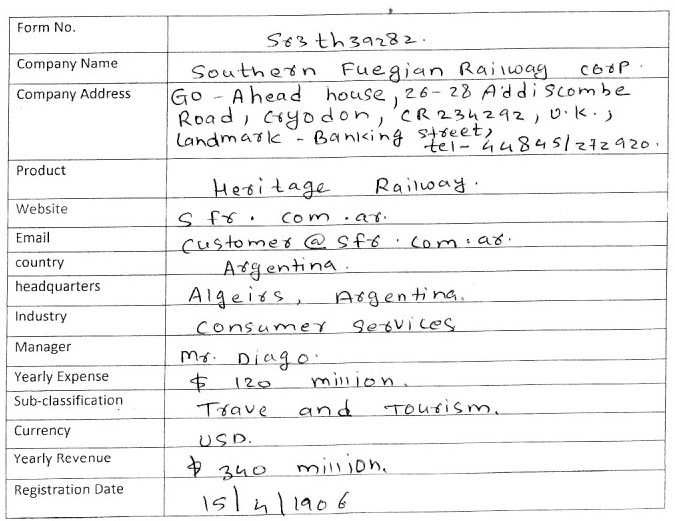 Form No. Sr3th39282.
Company Name Southern Fuegian Railway corp.
Company Address Go-Ahead house, 26-28 Addiscombe
Road, Cryodon, CR234292, U.K.,
Landmark - Banking street,
tel- 44845/272920.
Product Heritage Railway.
Website sfr.com.ar.
Email customer@sfr.com.ar.
country Argentina.
headquarters Algeirs, Argentina.
Industry Consumer Services
Manager Mr. Diago.
Yearly Expense $ 120 million.
Sub-classification Trave and Tourism.
Currency USD.
Yearly Revenue $ 340 million.
Registration Date 15/4/1906